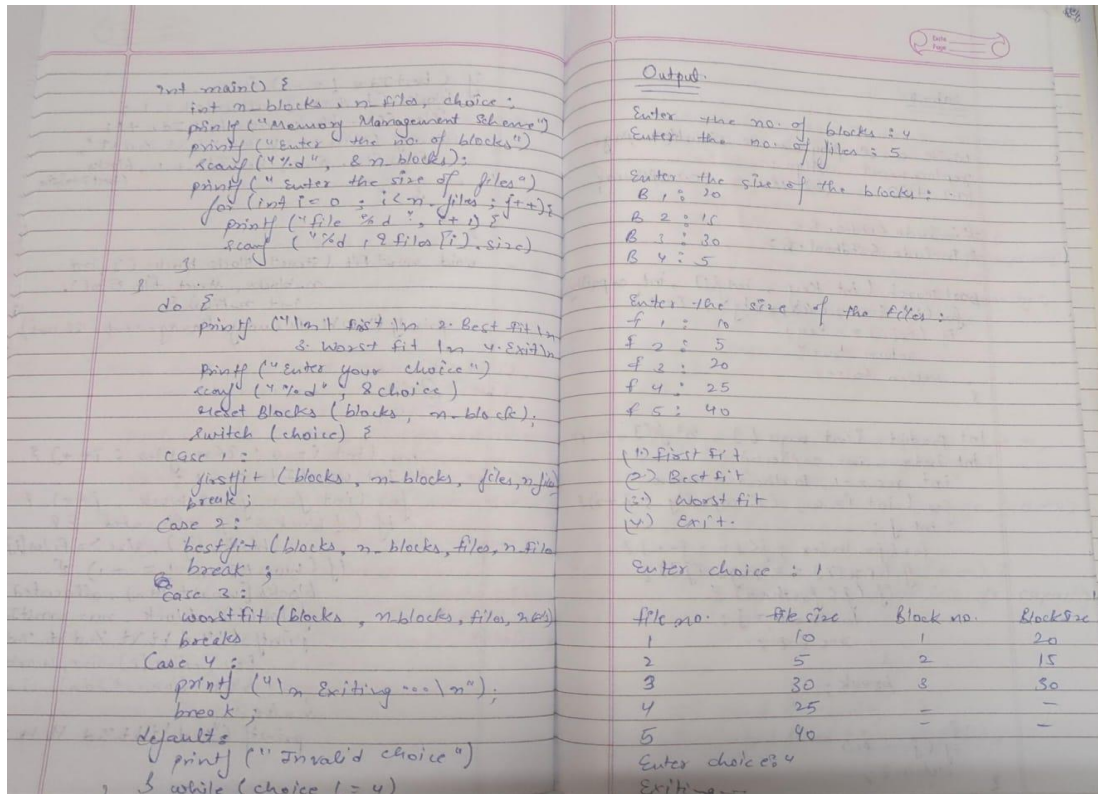 int main() {
int n_blocks, n_files, choice;
printf("Memory Management Scheme")
printf("Enter the no. of blocks")
scanf("%d", &n_blocks);
printf("Enter the size of files")
for (int i=0; i<n_files; i++);
printf("file %d", i+1) {
scanf("%d, &files[i].size)
}
}
do {
printf("\n 1 first \n 2. Best fit \n
3. Worst fit \n 4. Exit \n
Printf("Enter your choice")
scanf("%d", &choice)
reset Blocks (blocks, n_block);
switch (choice) {
case 1:
firstfit (blocks, n_blocks, files, n_files)
break;
Case 2:
bestfit (blocks, n_blocks, files, n_file
break;
Case 3:
worstfit (blocks, n_blocks, files,
breaks
Case 4:
printf("\n Exiting ...\n");
break;
default:
printf("Invalid choice")
} while (choice != 4)
Date
Page
Output.
Enter the no. of blocks : 4
Enter the no. of files : 5
Enter the size of the blocks :
B 1 : 20
B 2 : 15
B 3 : 30
B 4 : 5
Enter the size of the files :
f 1 : 10
f 2 : 5
f 3 : 20
f 4 : 25
f 5 : 40
(1.) first fit
(2.) Best fit
(3.) Worst fit
(4) Exit.
Enter choice : 1
file no. file size Block no. Block size
1 10 1 20
2 5 2 15
3 30 3 30
4 25 = -
5 40 = -
Enter choice: 4
Exiting